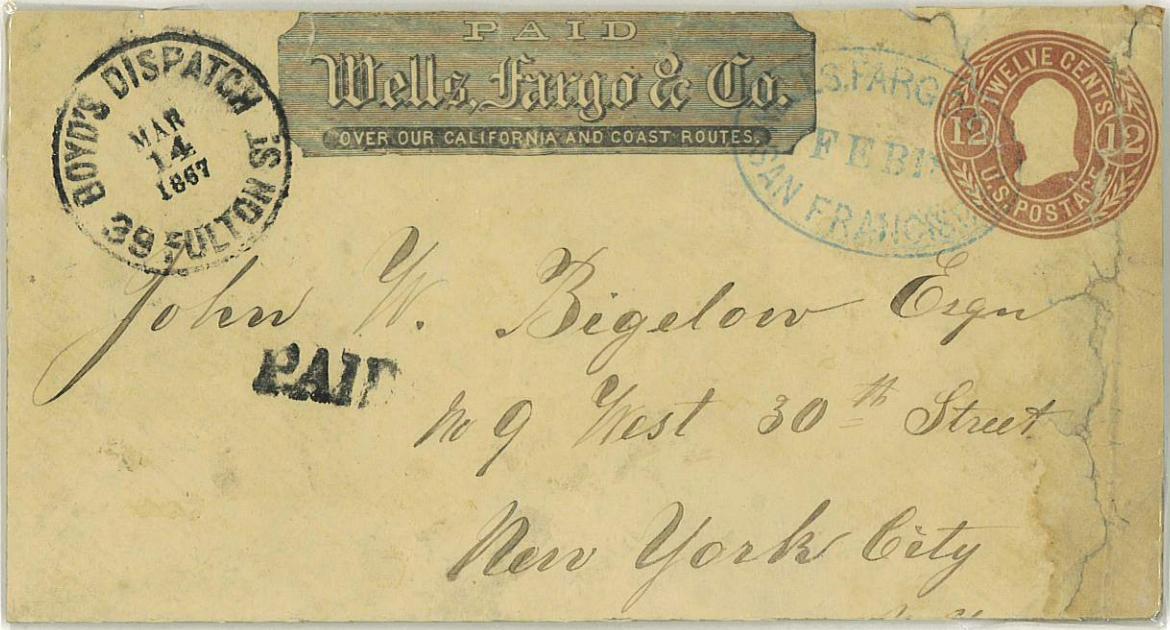 BOYD'S DISPATCH
MAR
14
1867
39 FULTON ST
PAID
Wells, Fargo & Co.
OVER OUR CALIFORNIA AND COAST ROUTES.
WELLS, FARGO
FEB
SAN FRANCISCO
TWELVE CENTS
12 12
U.S. POSTAGE
John W. Bigelow Esqr
PAID
No 9 West 30th Street
New York City